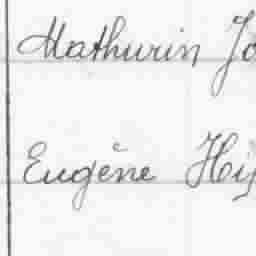 Mathurin Jo
Eugène Hi